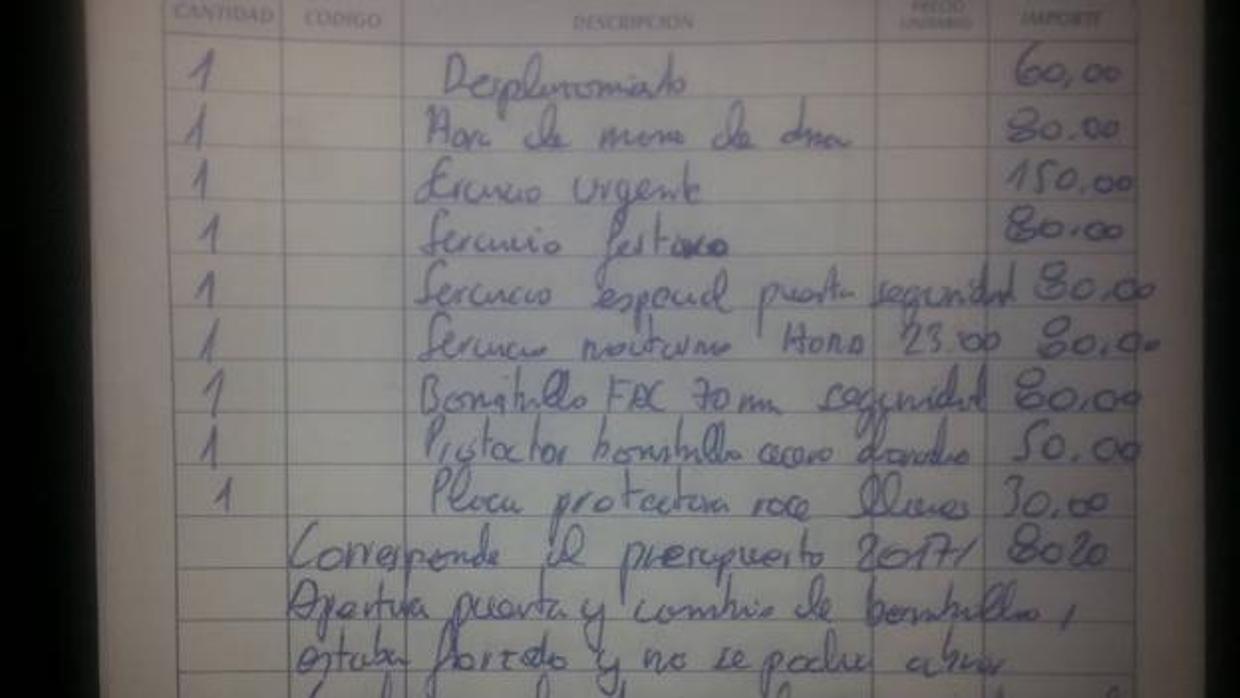 CANTIDAD CÓDIGO DESCRIPCIÓN PRECIO UNITARIO IMPORTE
1 Desplazamiento 60,00
1 Hora de mano de obra 80.00
1 Servicio urgente 150.00
1 Servicio festivo 80.00
1 Servicio especial puerta seguridad 80.00
1 Servicio nocturno Hora 23:00 80.00
1 Bombillo FAC 70 mm seguridad 80.00
1 Protector bombillo acero 50.00
1 Placa protectora roce llaves 30.00
Corresponde al presupuesto 2017/ 8020
Apertura puerta y cambio de bombillo,
estaba forzado y no se podia abrir